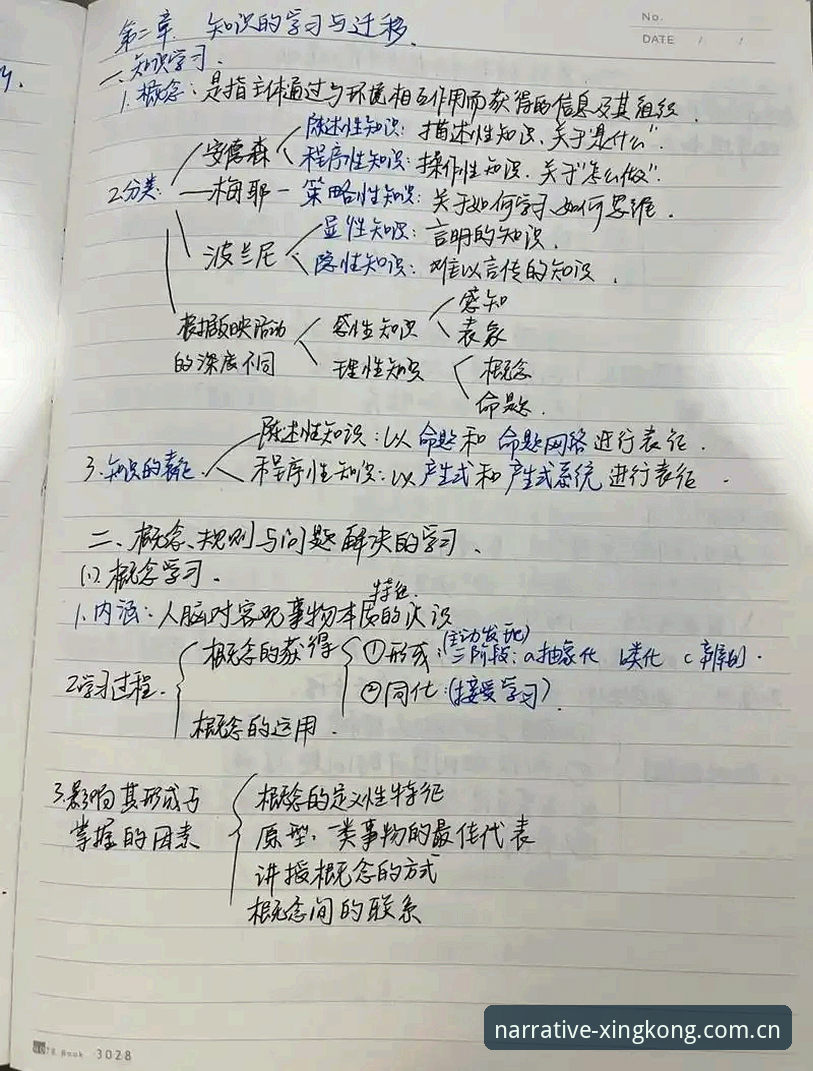 No.
DATE / /
第二章 知识的学习与迁移.
一、知识学习.
1. 概念：是指主体通过与环境相互作用而获得的信息及其组织.
2.分类：
安德森
陈述性知识：描述性知识、关于"是什么".
程序性知识：操作性知识. 关于"怎么做".
梅耶－策略性知识：关于如何学习、如何思维.
波兰尼
显性知识：言明的知识.
隐性知识：难以言传的知识.
根据反映活动
的深度不同
感性知识
感知
表象
理性知识
概念
命题.
3.知识的表征.
陈述性知识：以命题和命题网络进行表征.
程序性知识：以产生式和产生式系统进行表征.
二、概念、规则与问题解决的学习、
(1) 概念学习.
1. 内涵：人脑对客观事物本质特征的认识
2.学习过程.
概念的获得
①形成：(主动发现)
三阶段：a抽象化 b类化 c辨别.
②同化：(接受学习).
概念的运用.
3.影响其形成与
掌握的因素
概念的定义性特征
原型：一类事物的最佳代表
讲授概念的方式
概念间的联系
Book 3028
narrative-xingkong.com.cn